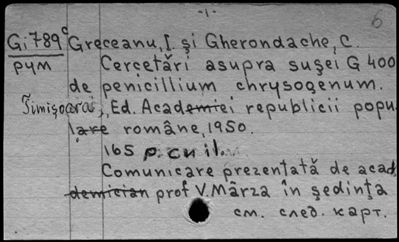 -1-
6
Gi789c Greceanu, I. şi Gherondache, C.
рум Cercetări asupra suşei G 400
de penicillium chrysogenum.
Timişoarai, Ed. Academiei republicii popu
lare române, 1950.
165 p. cu il.
Comunicare prezentată de acad
demician prof V. Mârza în şedinţa
см. след. карт.